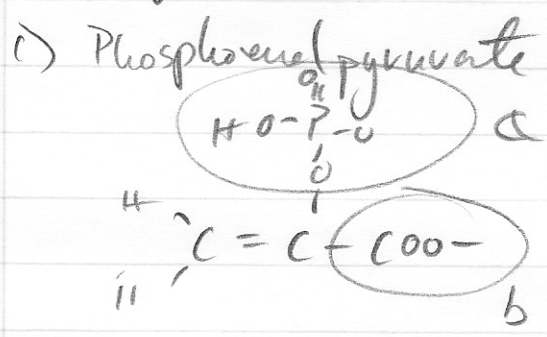 c) Phosphoenolpyruvate
O
H O-P-O a
O
H
C = C - COO-
H
b